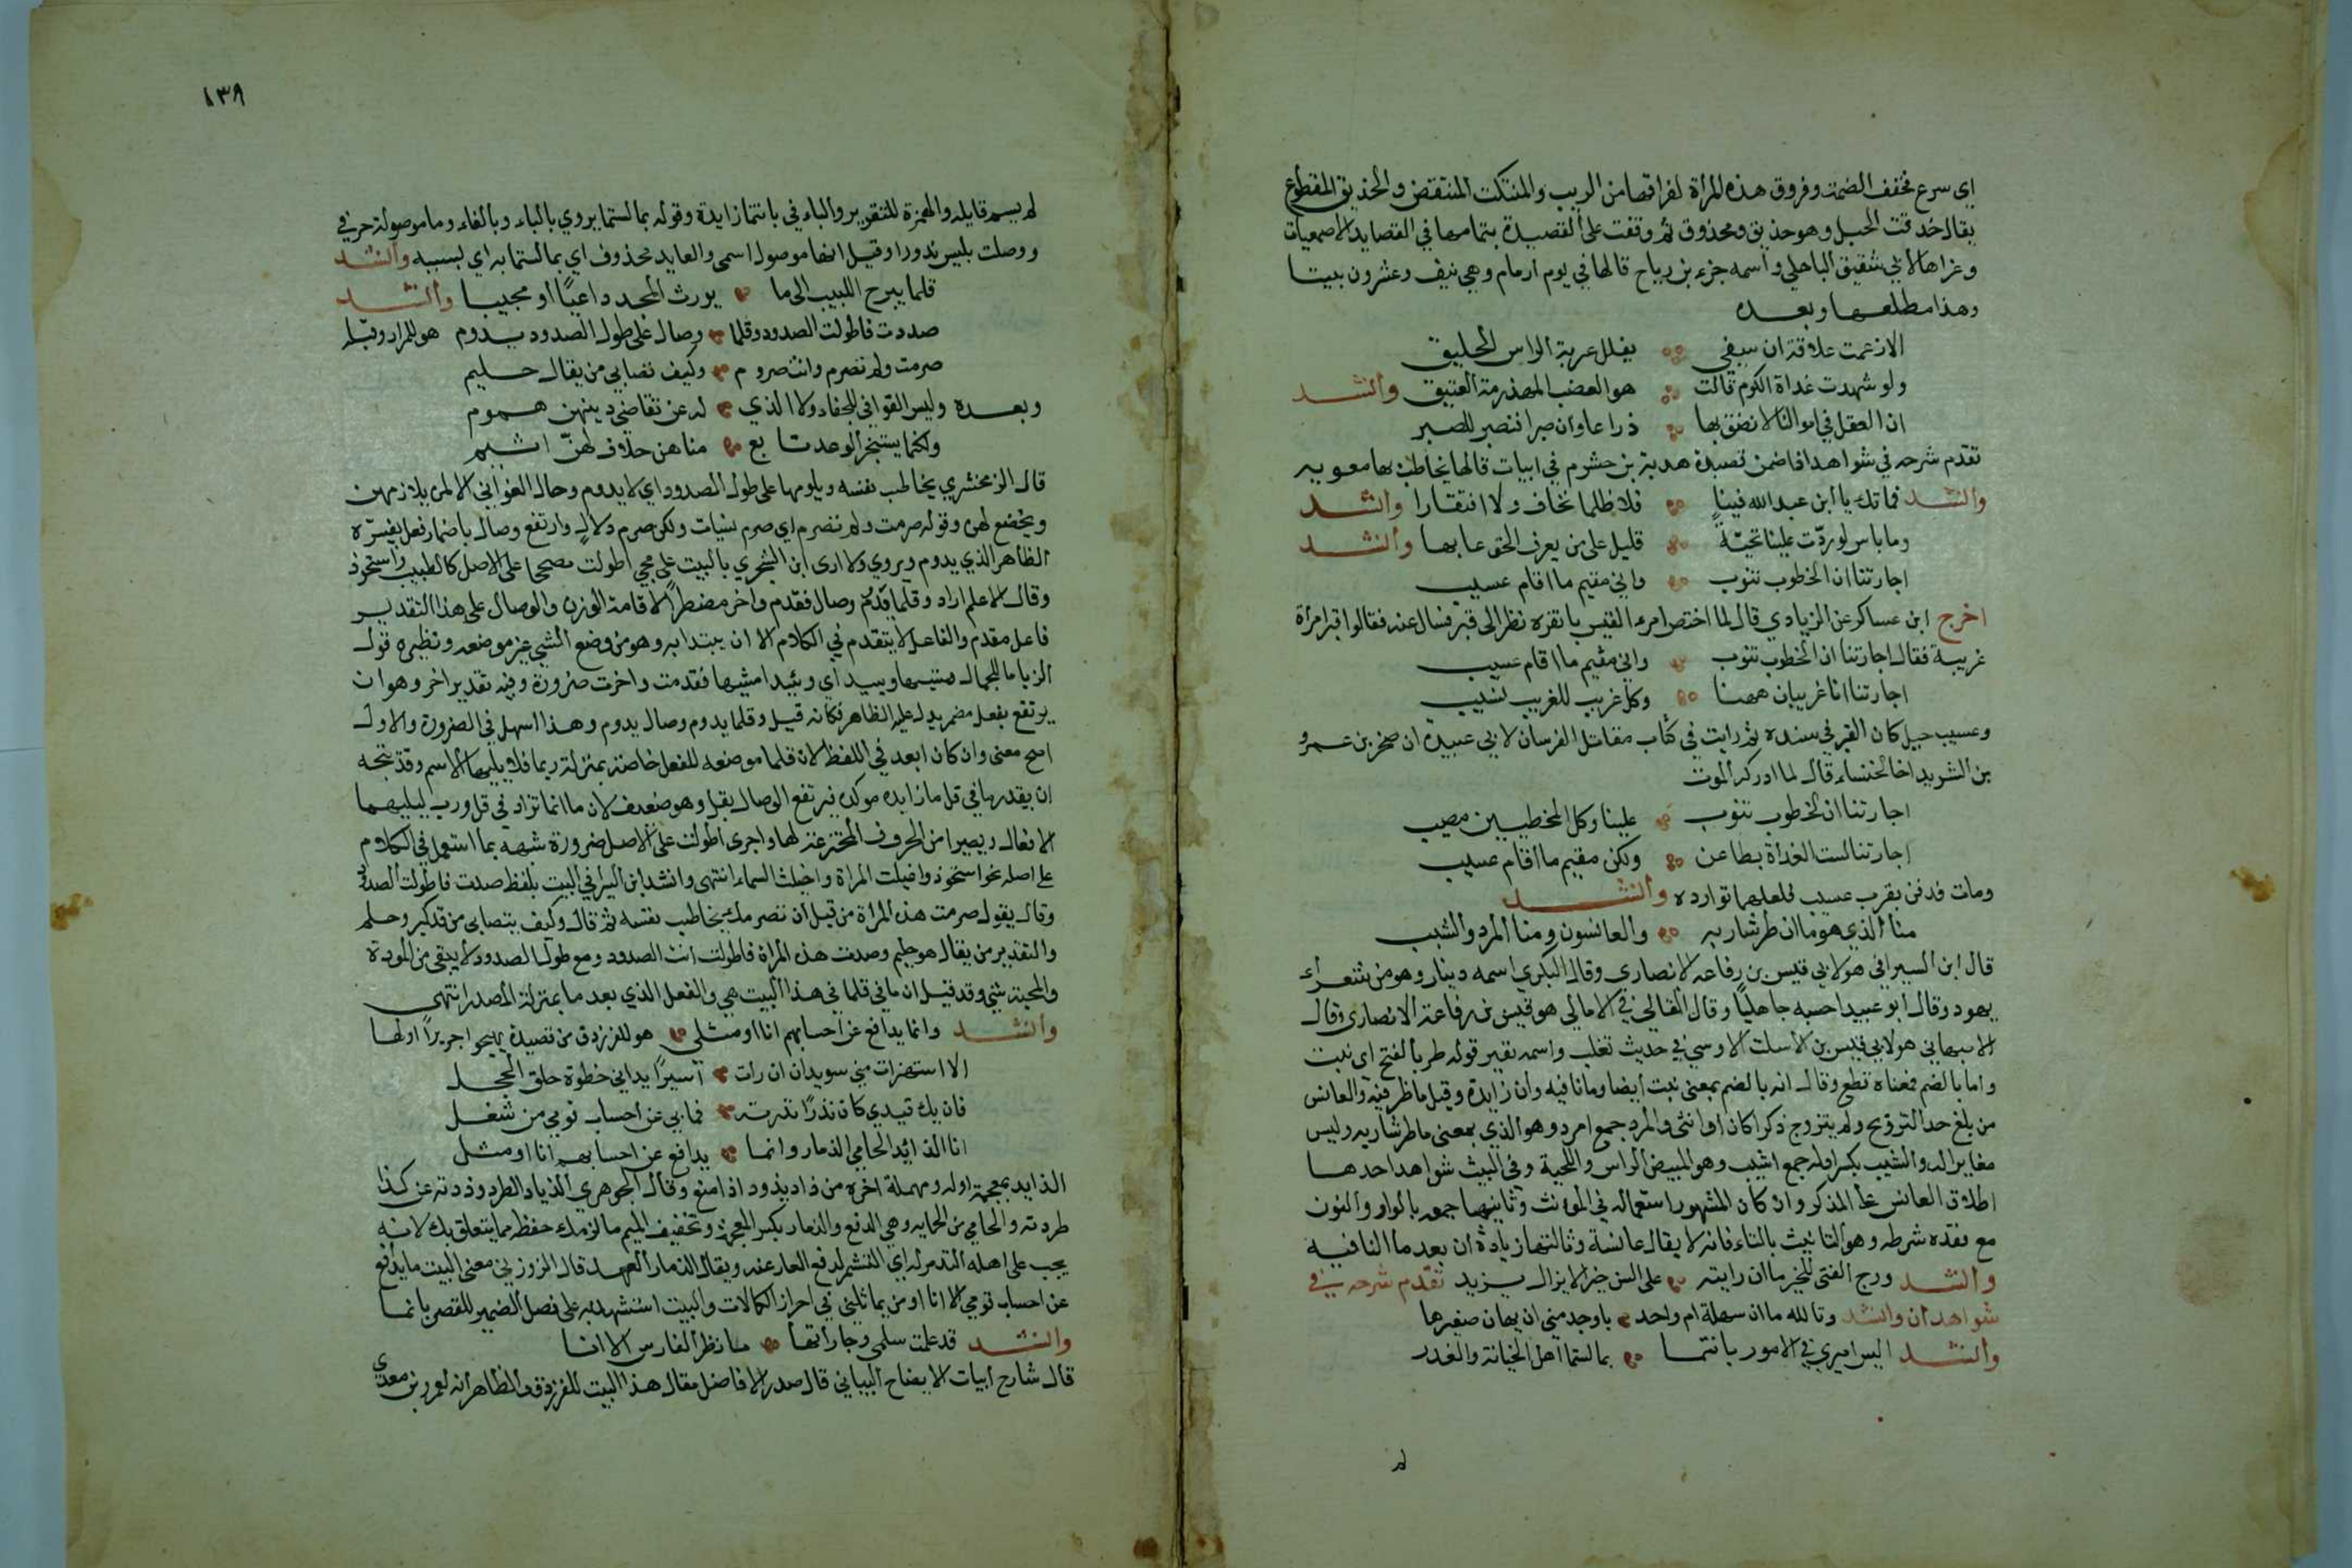 اي سرع فخفف الضمة وفروق هذه المراة لفراقها من الريب والمنتكث المنتقض والحذيق المقطوع
يقال حذقت الحبل وهو حذيق ومحذوق ثم وقفت على القصيدة بتمامها في القصايد الاصمعيات
وعزاها لابي شقيق الباهلي واسمه جزء بن رياح قالها في يوم ارمام وهي نيف وعشرون بيتا
وهذا مطلعها وبعده
الا زعمت علاقة ان سيفي يفلل غربه الراس الحليق
ولو شهدت غداة الكوم قالت هو العضب المهذرمة العتيق وانشد
ان العقل في اموالنا لا نضق بها ذراعا وان صبرا فنصبر للصبر
تقدم شرحه في شواهد اذا ضمن قصيدة هدبة بن خشرم في ابيات قالها يخاطب بها معويه
وانشد فما تك يا ابن عبد الله فينا فلا ظلما نخاف ولا افتقارا وانشد
وما باس لو ردت علينا تحية قليل على من يعرف الحق عابها وانشد
اجارتنا ان الخطوب تنوب واني مقيم ما اقام عسيب
اخرج ابن عساكر عن الزيادي قال لما احتضر امرء القيس بانقره نظر الى قبر فسال عنه فقالوا قبر امراة
غريبة فقال اجارتنا ان الخطوب تنوب واني مقيم ما اقام عسيب
اجارتنا انا غريبان ههنا وكل غريب للغريب نسيب
وعسيب جبل كان القبر في سنده ثم رايت في كتاب مقاتل الفرسان لابي عبيدة ان صخر بن عمرو
بن الشريد اخا الخنساء قال لما ادركه الموت
اجارتنا ان الخطوب تنوب علينا وكل المخطيين مصيب
اجارتنا لست الغداة بظاعن ولكن مقيم ما اقام عسيب
ومات فدفن بقرب عسيب فلعلهما تواردا وانشد
منا الذي هو ما ان طر شاربه والعانسون ومنا المرد والشيب
قال ابن السيرافي هو لابي قيس بن رفاعه الانصاري وقال البكري اسمه دينار وهو من شعراء
يهود وقال ابو عبيد احسبه جاهليا وقال القالي في الامالي هو قيس بن رفاعة الانصاري وقال
الاصبهاني هو لابي قيس بن الاسلت الاوسي في حديث تغلب واسمه نفير قوله طر بالفتح اي نبت
واما بالضم فمعناه قطع وقال انه بالضم بمعنى نبت ايضا وما نافيه وان زايدة وقيل ما ظرفية والعانس
من بلغ حد التزويج ولم يتزوج ذكرا كان او انثى والمرد جمع امرد وهو الذي بمعنى ما طر شاربه وليس
مغايرا له والشيب بكسر اوله جمع اشيب وهو المبيض الراس واللحية وفي البيت شواهد احدها
اطلاق العانس على المذكر وان كان المشهور استعماله في المؤنث وثانيها جمعه بالواو والنون
مع فقده شرطه وهو التانيث بالتاء فانه لا يقال عانسة وثالثها زيادة ان بعد ما النافيه
وانشد ورج الفتى للخير ما ان رايته على السن خيرا لا يزال يزيد تقدم شرحه في
شواهد ان وانشد وتالله ما ان سهلة ام واحد باوجد مني ان يهان صغيرها
وانشد اليس اميري في الامور بانتما بما لستما اهل الخيانة والغدر
لم
١٣٨
لم يسم قايله والهمزة للتقرير والباء في بانتما زايدة وقوله بما لستما يروي بالباء وبالفاء وما موصولة حرفي
ووصلت بليس ندورا وقيل انها موصول اسمى والعايد محذوف اي بما لستما به اي بسببه وانشد
قلما يبرح اللبيب الى ما يورث المجد داعيا او مجيبا وانشد
صددت فاطولت الصدود وقلما وصال على طول الصدود يدوم هو للمرار وقبله
صرمت ولم تصرم وانت صروم وكيف تصابي من يقال حليم
وبعده وليس الغواني للجفاء ولا الذي له عن تقاضي دينهن هموم
ولكنما يستنجز الوعد تابع مناهن حلاف لهن اثيم
قال الزمخشري يخاطب نفسه ويلومها على طول الصدود اي لا يدوم وحال الغواني الا لمن يلازمهن
ويخضع لهن وقوله صرمت ولم تصرم اي صرم بتات ولكن صرم دلال وارتفع وصال باضمار فعل يفسره
الظاهر الذي يدوم ويروي ولا ارى ابن الشجري بالبيت على مجي اطولت مصححا على الاصل كاطيب واستحوذ
وقال الاعلم اراد وقلما يدوم وصال فقدم واخر مضطرا لاقامة الوزن والوصال على هذا التقدير
فاعل مقدم والفاعل لا يتقدم في الكلام الا ان يبتدا به وهو من وضع الشي غير موضعه ونظيره قول
الزبا ما للجمال مشيها وييدا اي وئيدا مشيها فقدمت واخرت ضرورة وفيه تقدير اخر وهو ان
يرتفع بفعل مضمر يدل عليه الظاهر فكانه قيل وقلما يدوم وصال يدوم وهذا اسهل في الضرورة والاول
اصح معنى وان كان ابعد في اللفظ لان قلما موضعه للفعل خاصة بمنزلة ربما فلا يليها الاسم وقد يتجه
ان يقدر ما في قل ما زايده موكده فيرتفع الوصال بقل وهو ضعيف لان ما انما تزاد في قل ورب ليليهما
الافعال ويصيرا من الحروف المخترعة لها واجرى اطولت على الاصل ضرورة شبهه بما استعمل في الكلام
على اصله نحو استحوذ واغيلت المراة واخيلت السماء انتهى وانشد ابن السيرافي البيت بلفظ صدت فاطولت الصدود
وقال يقول صرمت هذه المراة من قبل ان تصرمك يخاطب نفسه ثم قال وكيف يتصابى من قد كبر وحلم
والتقدير من يقال هو حليم وصدت هذه المراة فاطولت انت الصدود ومع طول الصدود لا يبقى من المودة
والمحبة شي وقد قيل ان ما في قلما في هذا البيت هي والفعل الذي بعد ما بمنزلة المصدر انتهى
وانشد وانما يدافع عن احسابهم انا او مثلي هو للفرزدق من قصيدة يهجوا جريرا اولها
الا استهزات مني سويدان ان رات اسيرا يداني خطوه حلق الحجل
فان يك قيدي كان نذرا نذرته فما بي عن احساب قومي من شغل
انا الذائد الحامي الذمار وانما يدافع عن احسابهم انا او مثل
الذايد بمعجمة اوله ومهملة اخره من ذاد يذود اذا منع وقال الجوهري الذياد الطرد وذدته عن كذا
طردته والحامي من الحمايه وهي الدفع والذمار بكسر المعجمة وتخفيف الميم ما لزمك حفظه مما يتعلق بك لانه
يجب على اهله التذمر له اي التشمر لدفع العار عنه ويقال الذمار العهد قال الزوزني معنى البيت ما يدافع
عن احساب قومي الا انا او من يماثلني في احراز الكمالات والبيت استشهد به على فصل الضمير للقصر بانما
وانشد قد علمت سلمى وجاراتها ما نظر الفارس الا انا
قال شارح ابيات الايضاح البياني قال صدر الافاضل مقال هذا البيت للفرزدق والظاهر انه لعمرو بن معدي